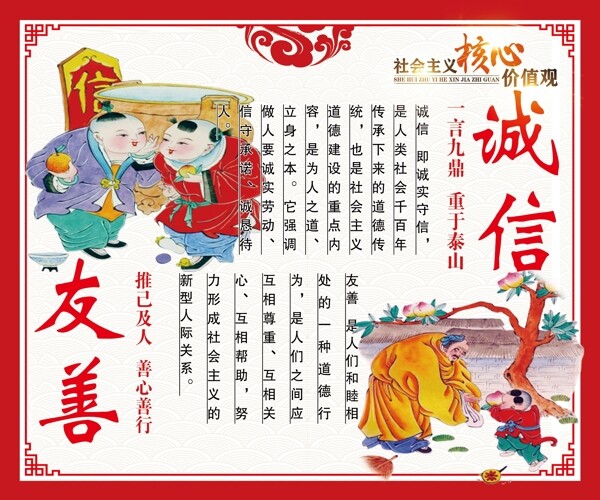 社会主义核心价值观
SHE HUI ZHU YI HE XIN JIA ZHI GUAN
诚信
一言九鼎 重于泰山
诚信 即诚实守信，
是人类社会千百年
传承下来的道德传
统，也是社会主义
道德建设的重点内
容，是为人之道、
立身之本。它强调
做人要诚实劳动、
信守承诺、诚恳待
人。
信
友善 是人们和睦相
处的一种道德行
为，是人们之间应
互相尊重、互相关
心、互相帮助，努
力形成社会主义的
新型人际关系。
推己及人 善心善行
友善